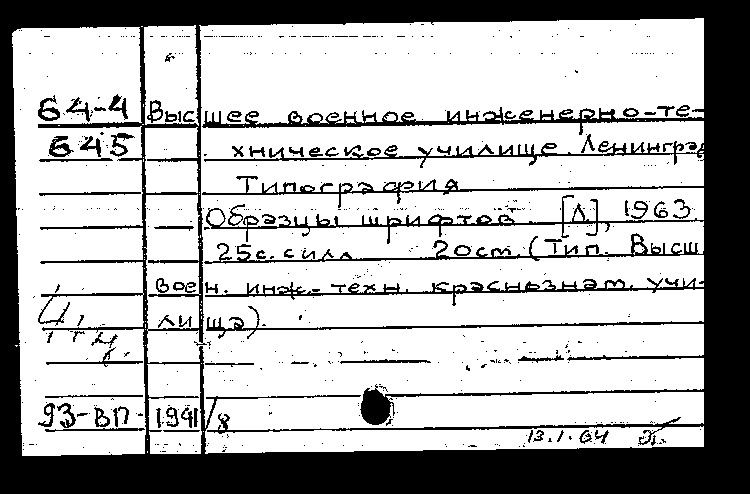 64-4 Высшее военное инженерно-те-
645 хническое училище. Ленинград
Типография
Образцы шрифтов. [Л], 1963
25с. с илл 20см. (Тип. Высш.
воен. инж.-техн. краснознам. учи-
лища).
93-ВП- 1941/8
13.1.64